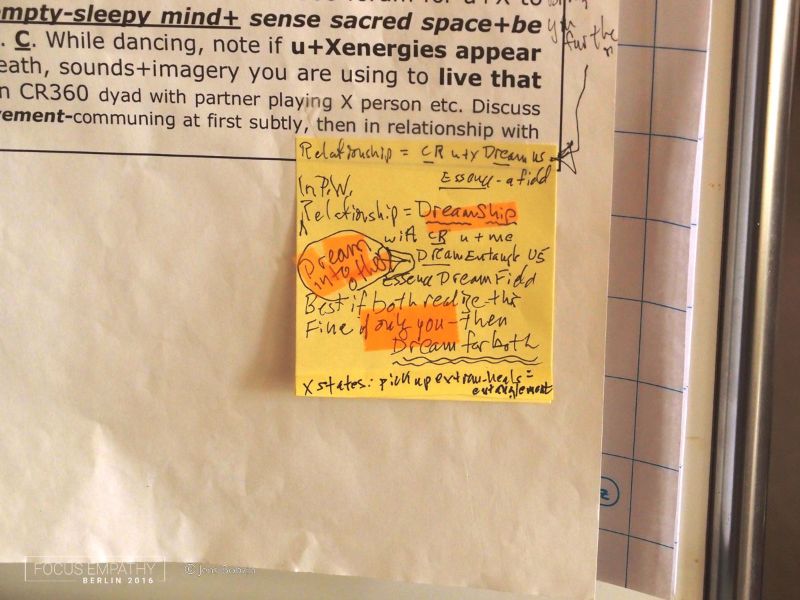 empty-sleepy mind+ sense sacred space+be
. C. While dancing, note if u+Xenergies appear
eath, sounds+imagery you are using to live that
n CR360 dyad with partner playing X person etc. Discuss
vement-communing at first subtly, then in relationship with
further
Relationship = CR u+y Dream us
Essence - a field
In P.W.
Relationship = DreamShip
with CR u+me
Dream Entangle US
Dream into other
Essence Dream Field
Best if both realize this
Fine if only you - Then
Dream for both
X states: pick up extrem-heals =
entanglement
FOCUS EMPATHY
BERLIN 2016